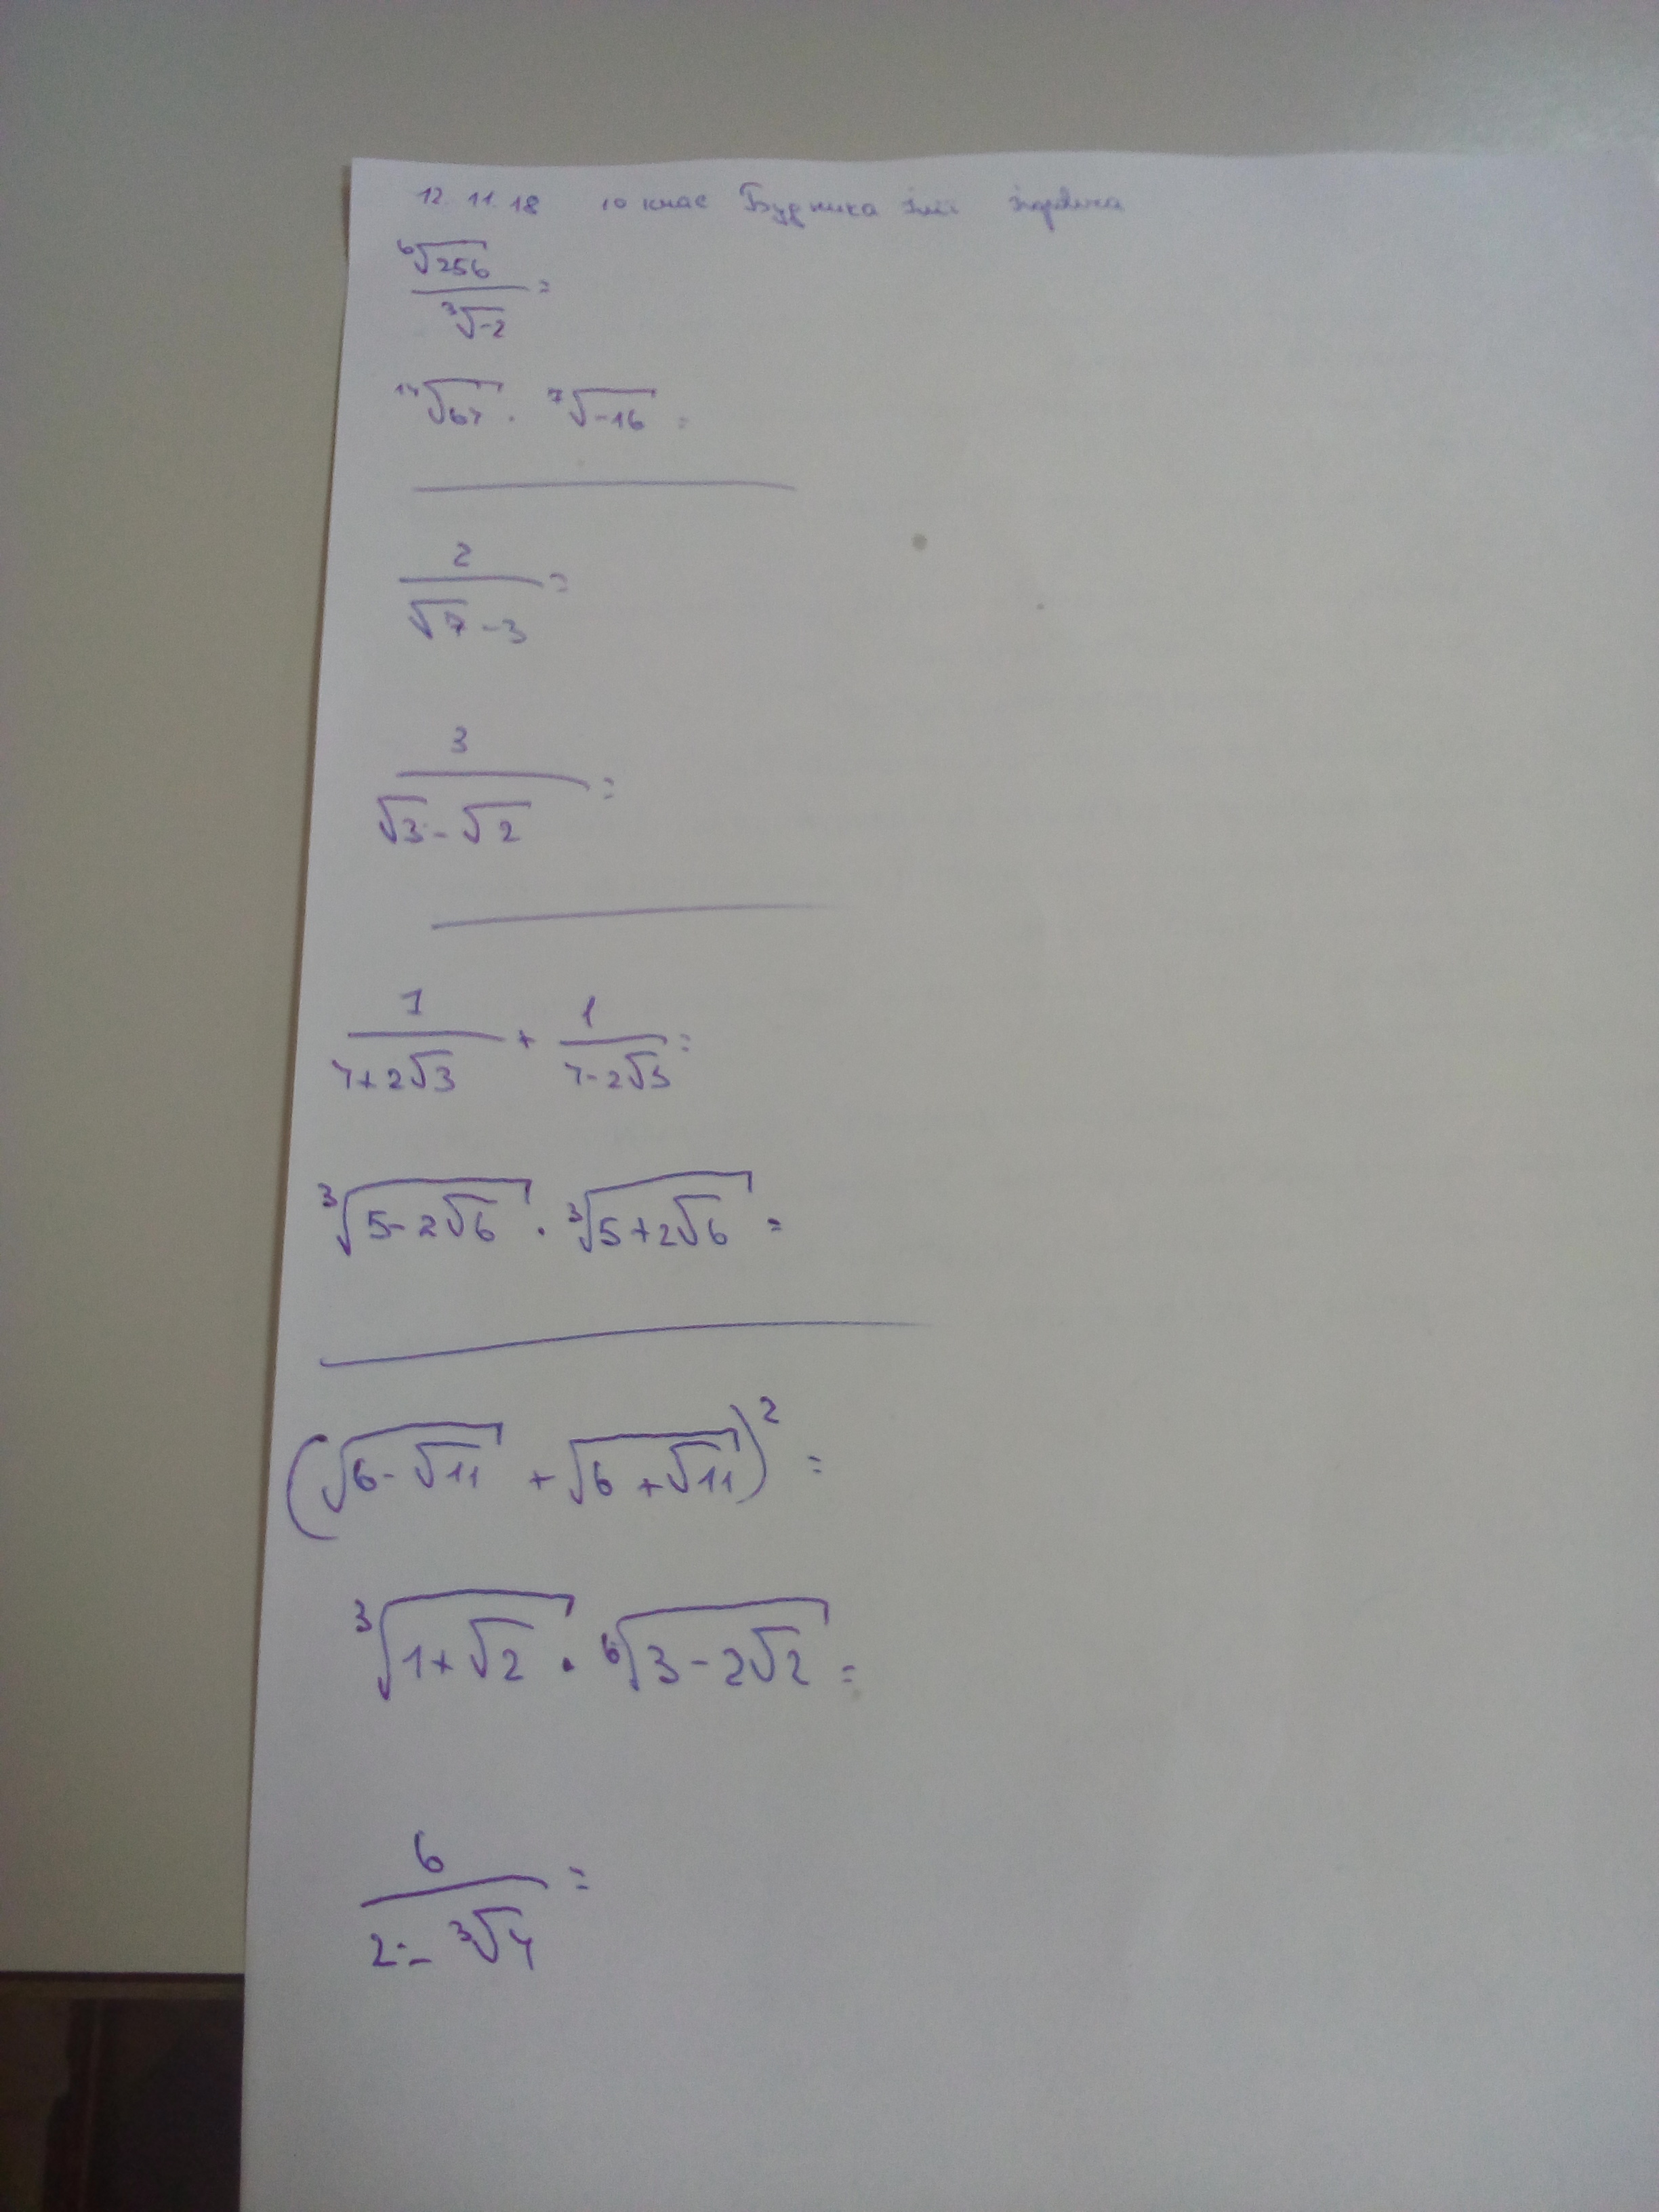 12.11.18 10 клас
⁶√256 / ³√-2 =
¹⁴√64 · ⁷√-16 =
2 / (√7 - 3) =
3 / (√3 - √2) =
1 / (4+2√3) + 1 / (4-2√3) =
³√(5-2√6) · ³√(5+2√6) =
(√(6-√11) + √(6+√11))² =
³√(1+√2) · ⁶√(3-2√2) =
6 / (2 - ³√4) =